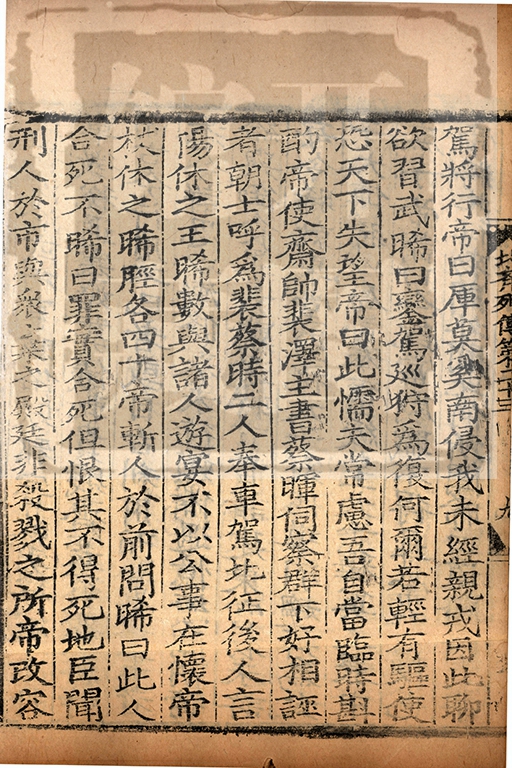 駕將行帝曰厙莫奚南侵我未經親戎因此聊
欲習武晞曰鑾駕巡狩爲復何爾若輕有驅使
恐天下失望帝曰此懦夫常慮吾自當臨時斟
酌帝使齋帥裴澤主書蔡暉伺察群下好相誣
者朝士呼爲裴蔡時二人奉車駕北征後人言
陽休之王晞數與諸人遊宴不以公事在懷帝
杖休之晞脛各四十帝斬人於前問晞曰此人
合死不晞曰罪實合死但恨其不得死地臣聞
刑人於市與衆棄之殿廷非殺戮之所帝改容